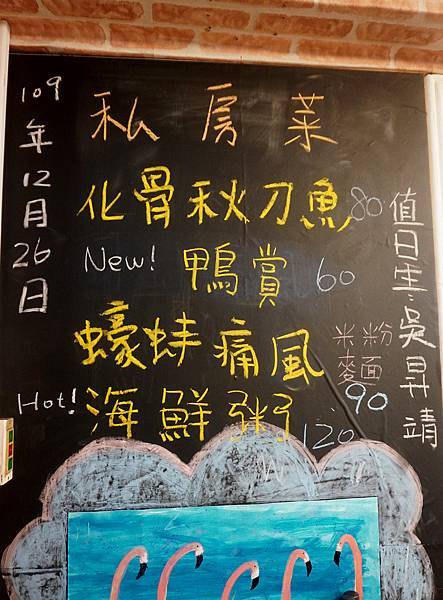 109年12月26日
私房菜
化骨秋刀魚 80
New! 鴨賞 60
蠔蛙痛風 米粉麵 90
Hot! 海鮮粥 120
值日生:吳昇靖